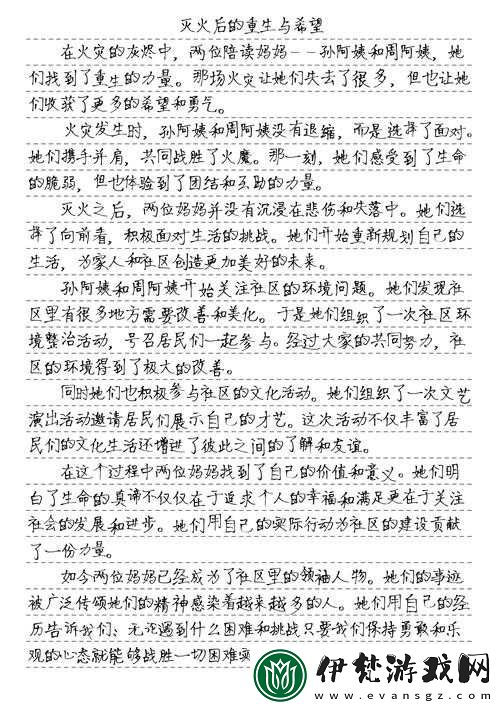 灭火后的重生与希望
在火灾的灰烬中，两位陪读妈妈--孙阿姨和周阿姨，她
们找到了重生的力量。那场火灾让她们失去了很多，但也让她
们收获了更多的希望和勇气。
火灾发生时，孙阿姨和周阿姨没有退缩，而是选择了面对。
她们携手并肩，共同战胜了火魔。那一刻，她们感受到了生命
的脆弱，但也体验到了团结和互助的力量。
灭火之后，两位妈妈并没有沉浸在悲伤和失落中。她们选
择了向前看，积极面对生活的挑战。她们开始重新规划自己的
生活，为家人和社区创造更加美好的未来。
孙阿姨和周阿姨开始关注社区的环境问题。她们发现社
区里有很多地方需要改善和美化。于是她们组织了一次社区环
境整治活动，号召居民们一起参与。经过大家的共同努力，社
区的环境得到了极大的改善。
同时她们也积极参与社区的文化活动。她们组织了一次文艺
演出活动邀请居民们展示自己的才艺。这次活动不仅丰富了居
民们的文化生活还增进了彼此之间的了解和友谊。
在这个过程中两位妈妈找到了自己的价值和意义。她们明
白了生命的真谛不仅仅在于追求个人的幸福和满足更在于关注
社会的发展和进步。她们用自己的实际行动为社区的建设贡献
了一份力量。
如今两位妈妈已经成为了社区里的领袖人物。她们的事迹
被广泛传颂她们的精神感染着越来越多的人。她们用自己的经
历告诉我们：无论遇到什么困难和挑战只要我们保持勇敢和乐
观的心态就能够战胜一切困难实
伊梵游戏网
www.evansgz.com